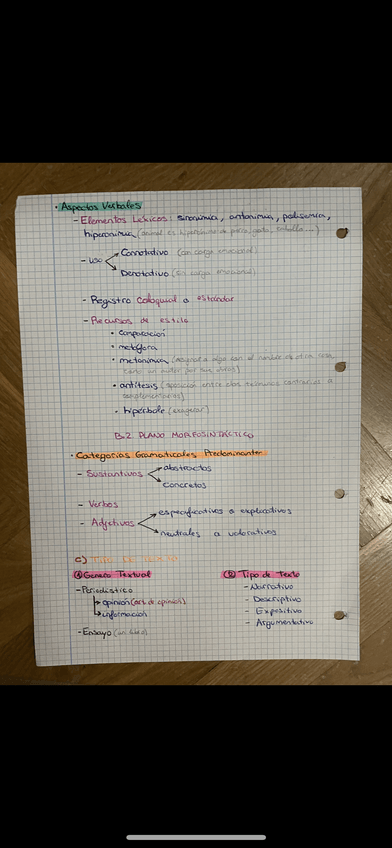 · Aspectos Verbales
- Elementos Léxicos: sinonimia, antonimia, polisemia,
hiperonimia (animal es hiperónimo de perro, gato, caballo...)
- uso
Connotativo (con carga emocional)
Denotativo (sin carga emocional)
- Registro Coloquial o estándar
- Recursos de estilo
· comparación
· metáfora
· metonimia (nombrar a algo con el nombre de otra cosa,
como un autor por sus obras)
· antítesis (oposición entre dos términos contrarios o
complementarios)
· hipérbole (exagerar)
B.2 PLANO MORFOSINTÁCTICO
· Categorías Gramaticales Predominantes
- Sustantivos
abstractos
concretos
- Verbos
- Adjetivos
especificativos o explicativos
neutrales o valorativos
c) TIPO DE TEXTO
① Género Textual
② Tipo de Texto
- Periodístico
opinión (art. de opinión)
información
- Ensayo (un libro)
- Narrativo
- Descriptivo
- Expositivo
- Argumentativo